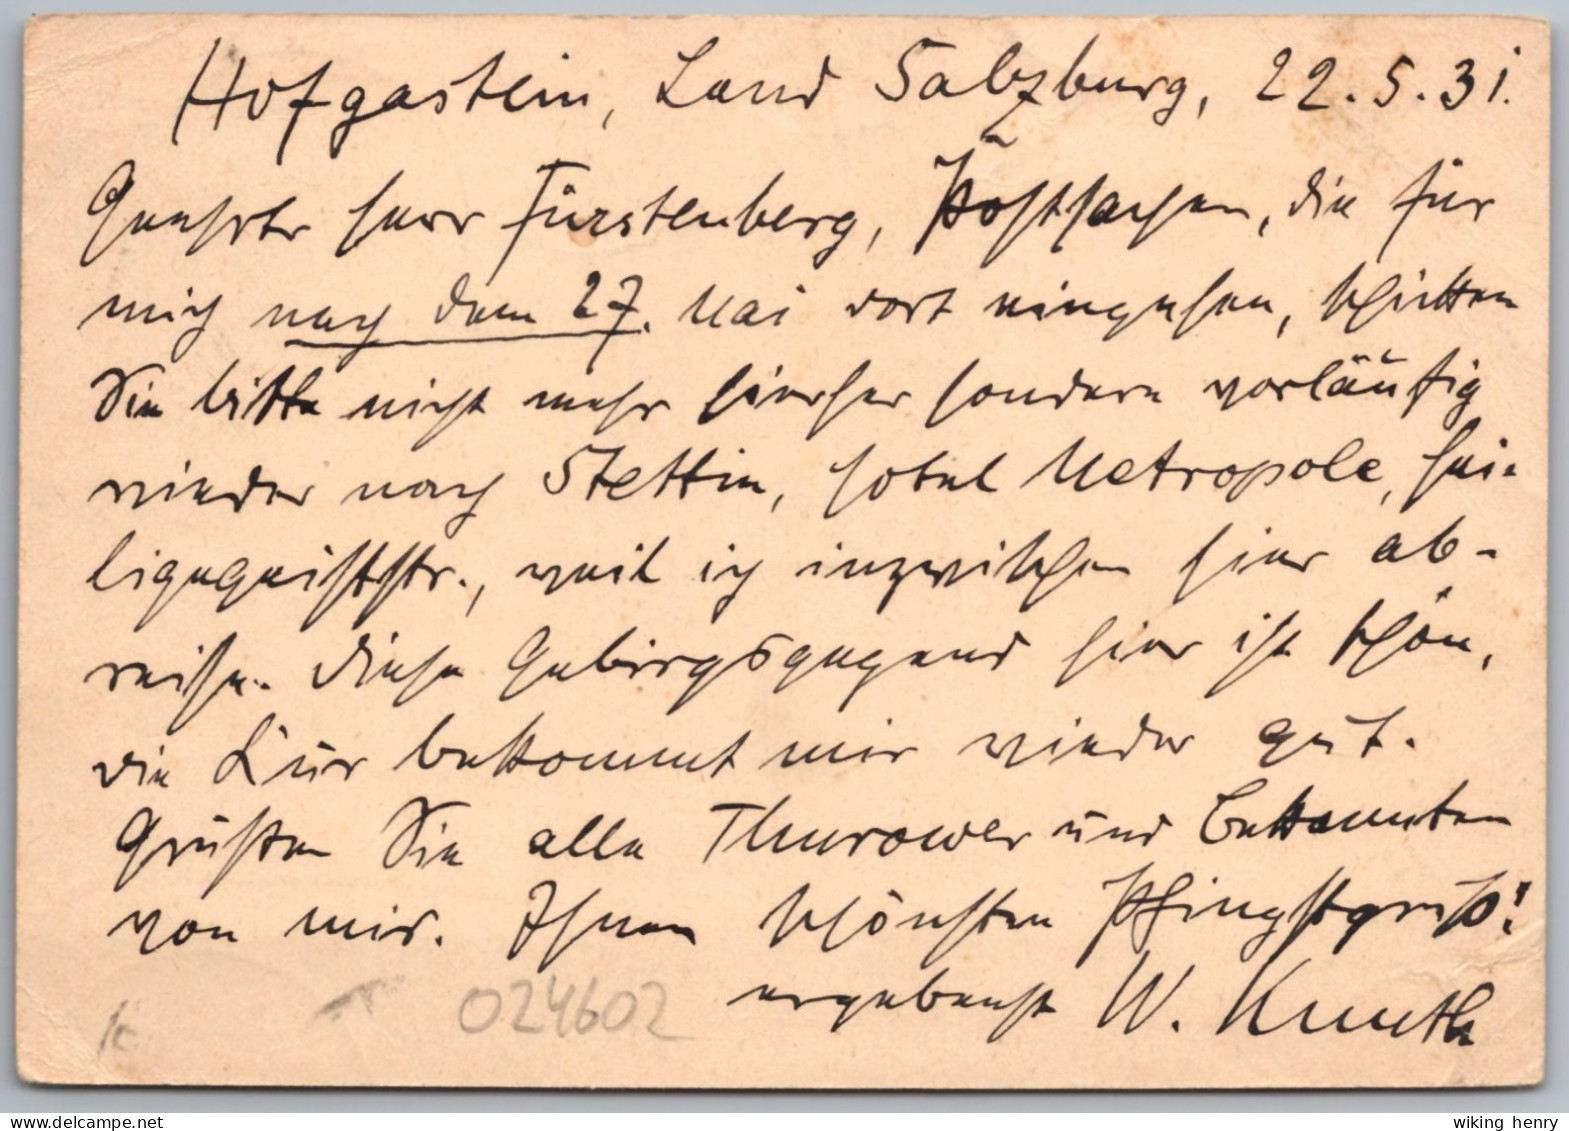 Hofgastein, Land Salzburg, 22.5.31.
Geehrter Herr Fürstenberg, Postsachen, die für
mich nach dem 27. Mai dort eingehen, schicken
Sie bitte nicht mehr hierher sondern vorläufig
wieder nach Stettin, Hotel Metropole, Hei-
ligegeiststr., weil ich inzwischen hier ab-
reise. Diese Gebirgsgegend hier ist schön,
die Kur bekommt mir wieder gut.
Grüßen Sie alle Thurower und Bekannten
von mir. Ihnen schönsten Pfingstgruß!
ergebenst W. Knuth
024602
www.delcampe.net
wiking henry